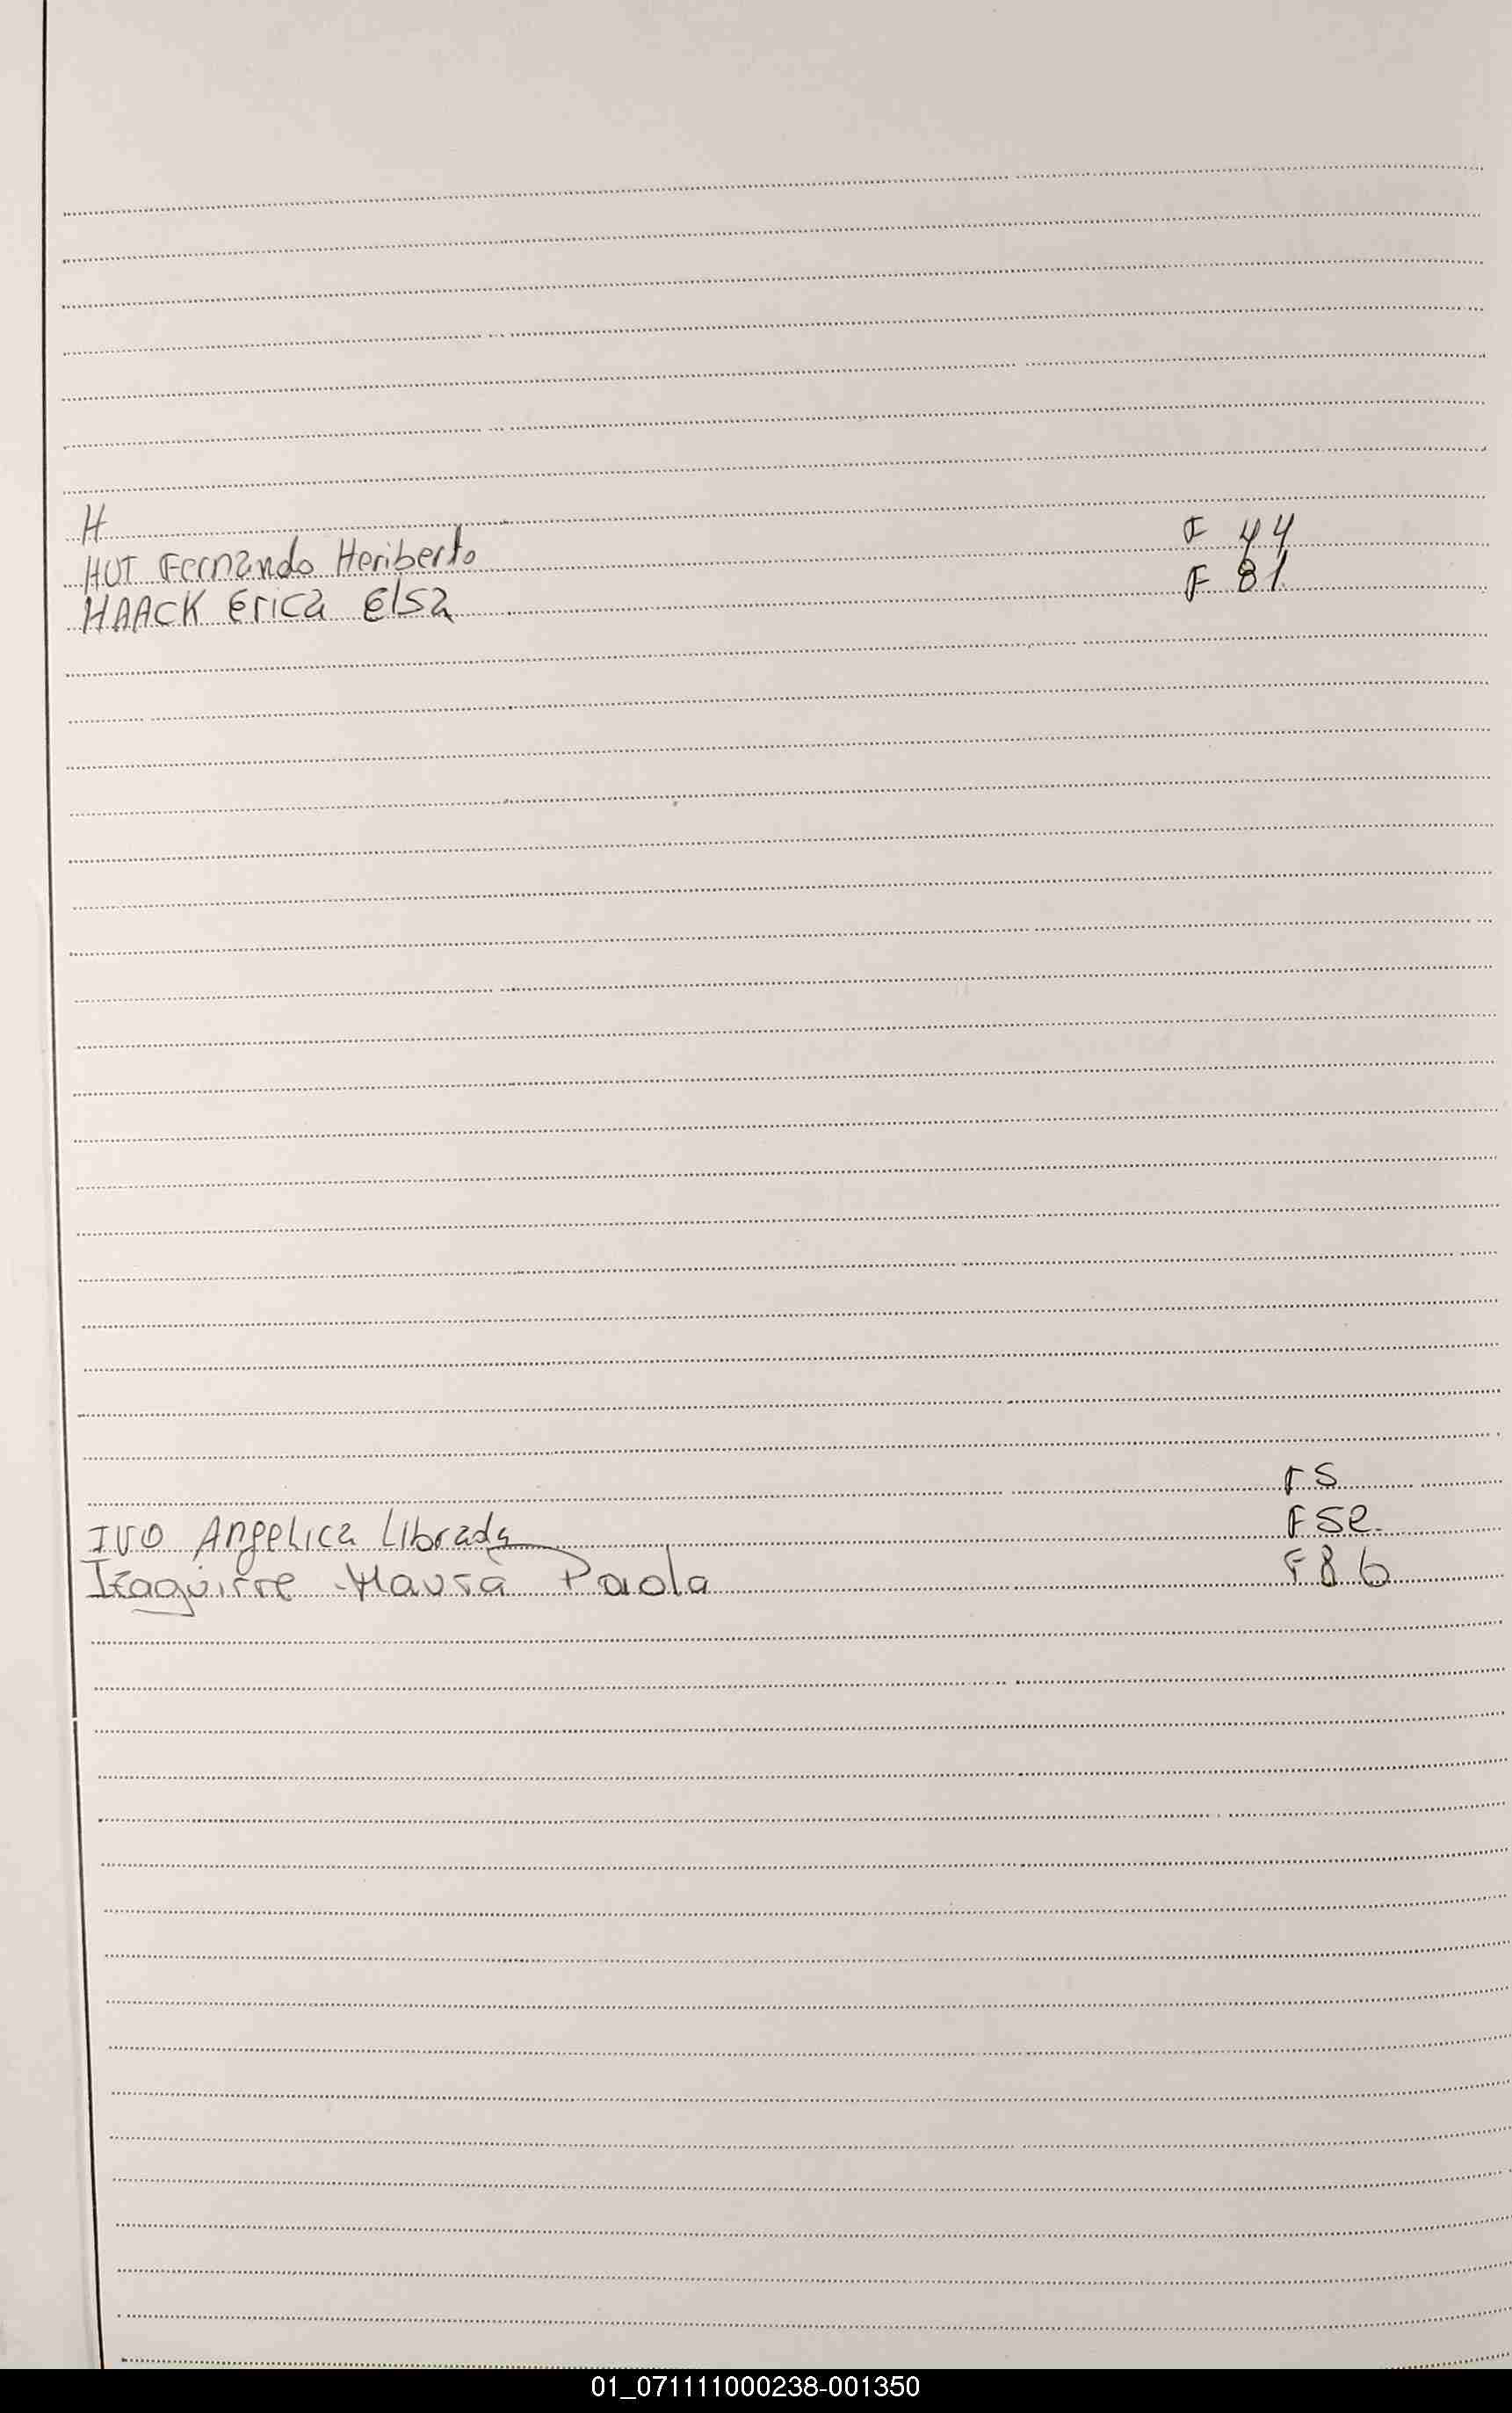 H
HUT Fernando Heriberto F 44
HAACK Erica Elsa F 81
F 5
IVO Angelica Librada F 52.
Izaguirre Maura Paola F 86
01_071111000238-001350